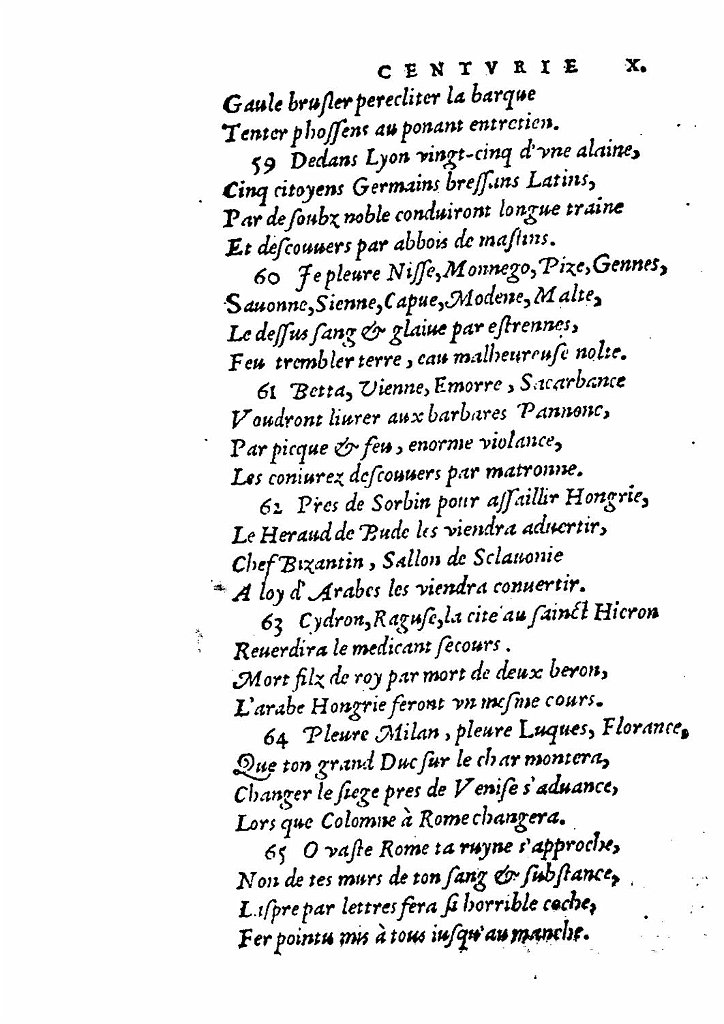 CENTVRIE X.
Gaule bruſler perecliter la barque
Tenter phoſſens au ponant entretien.
59 Dedans Lyon vingt-cinq d'vne alaine,
Cinq citoyens Germains breſſans Latins,
Par deſoubz noble conduiront longue traine
Et deſcouuers par abbois de maſtins.
60 Je pleure Niſſe, Monnego, Pize, Gennes,
Sauonne, Sienne, Capue, Modene, Malte,
Le deſſus ſang & glaiue par eſtrennes,
Feu trembler terre, eau malheureuſe nolte.
61 Betta, Vienne, Emorre, Sacarbance
Voudront liurer aux barbares Pannone,
Par picque & feu, enorme violance,
Les coniurez deſcouuers par matronne.
62 Pres de Sorbin pour aſſaillir Hongrie,
Le Heraud de Bude les viendra aduertir,
Chef Bizantin, Sallon de Sclauonie
A loy d'Arabes les viendra conuertir.
63 Cydron, Raguſe, la cité au ſainct Hieron
Reuerdira le medicant ſecours.
Mort filz de roy par mort de deux heron,
L'arabe Hongrie feront vn meſme cours.
64 Pleure Milan, pleure Luques, Florance,
Que ton grand Duc ſur le char montera,
Changer le ſiege pres de Veniſe s'aduance,
Lors que Colomne à Rome changera.
65 O vaſte Rome ta ruyne s'approche,
Non de tes murs de ton ſang & ſubſtance,
L'aſpre par lettres fera ſi horrible coche,
Fer pointu mis à tous iuſqu'au manche.